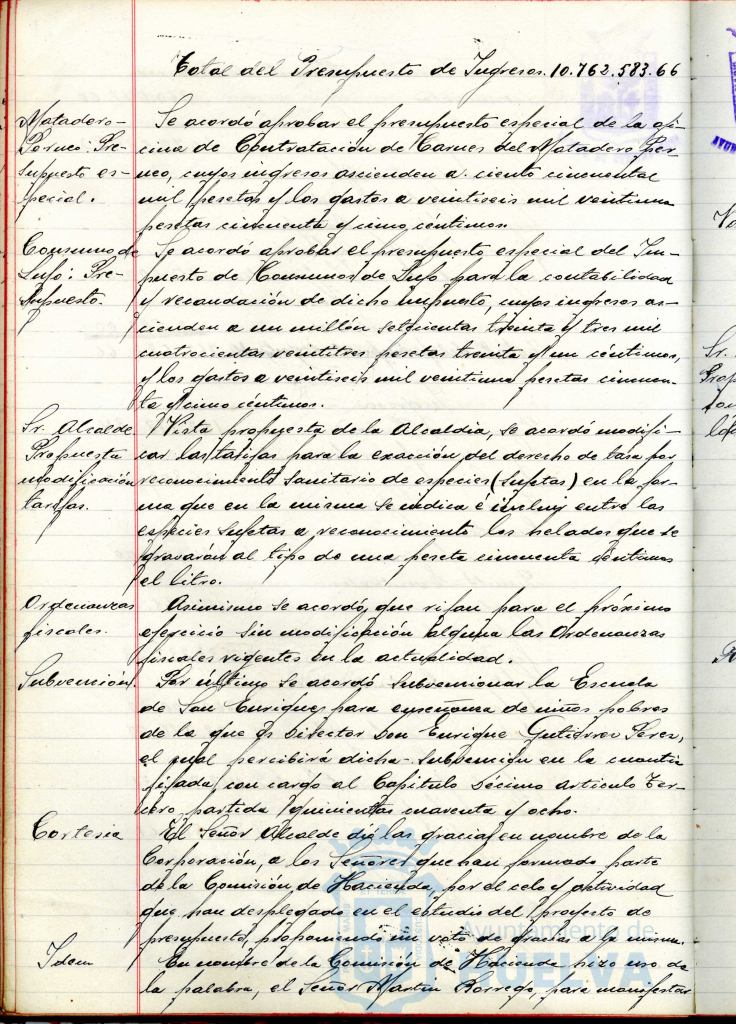 Total del Presupuesto de Ingresos. 10.762.583.66
Matadero-
Porcno: Pre-
supuesto es-
pecial.
Se acordó aprobar el presupuesto especial de la ofi-
cina de Contratación de Carnes del Matadero Por-
cno, cuyos ingresos ascienden a ciento cincuenta
mil pesetas y los gastos a veintiseis mil veintiuna
pesetas cincuenta y cinco céntimos.
Consumo de
Lujo: Pre-
supuesto.
Se acordó aprobar el presupuesto especial del Im-
puesto de Consumos de Lujo para la contabilidad
y recaudación de dicho impuesto, cuyos ingresos as-
cienden a un millón setecientas treinta y tres mil
cuatrocientas veintitres pesetas treinta y un céntimos,
y los gastos a veintiseis mil veintiuna pesetas cincuen-
ta y cinco céntimos.
Sr. Alcalde
Propuesta
modificación
tarifas.
Vista propuesta de la Alcaldia, se acordó modifi-
car las tarifas para la exacción del derecho de tasa por
reconocimiento sanitario de especies (sujetas) en la for-
ma que en la misma se indica é incluir entre las
especies sujetas a reconocimiento los helados que se
gravarán al tipo de una peseta cincuenta céntimos
el litro.
Ordenanzas
fiscales.
Asimismo se acordó, que rijan para el próximo
ejercicio sin modificación alguna las Ordenanzas
fiscales vigentes en la actualidad.
Subvención.
Por último se acordó subvencionar la Escuela
de San Enrique, para enseñanza de niños pobres
de la que es Director Don Enrique Gutiérrez Perez,
el cual percibirá dicha subvención en la cuantía
fijada, con cargo al Capítulo Décimo artículo Ter-
cero, partida quinientas cuarenta y ocho.
Cortesia
El Señor Alcalde dió las gracias en nombre de la
Corporación, a los Señores que han formado parte
de la Comisión de Hacienda, por el celo y actividad
que han desplegado en el estudio del proyecto de
presupuesto, proponiendo un voto de gracias a la misma.
Idem
En nombre de la Comisión de Hacienda hizo uso de
la palabra, el Señor Martin Borrego, para manifestar
Ayuntamiento de
HUELVA